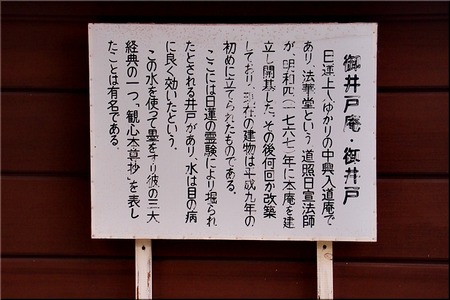 御井戸庵・御井戸
日蓮上人ゆかりの中興入道庵で
あり、法華堂という。道照日宣法師
が、明和四(一七六七)年に本庵を建
立し開基した。その後何回か改築
しており、現在の建物は平成九年の
初めに立てられたものである。
ここには日蓮の霊験により堀られ
たとされる井戸があり、水は目の病
に良く効いたという。
この水を使って墨をすり彼の三大
経典の一つ、「観心本尊抄」を表し
たことは有名である。